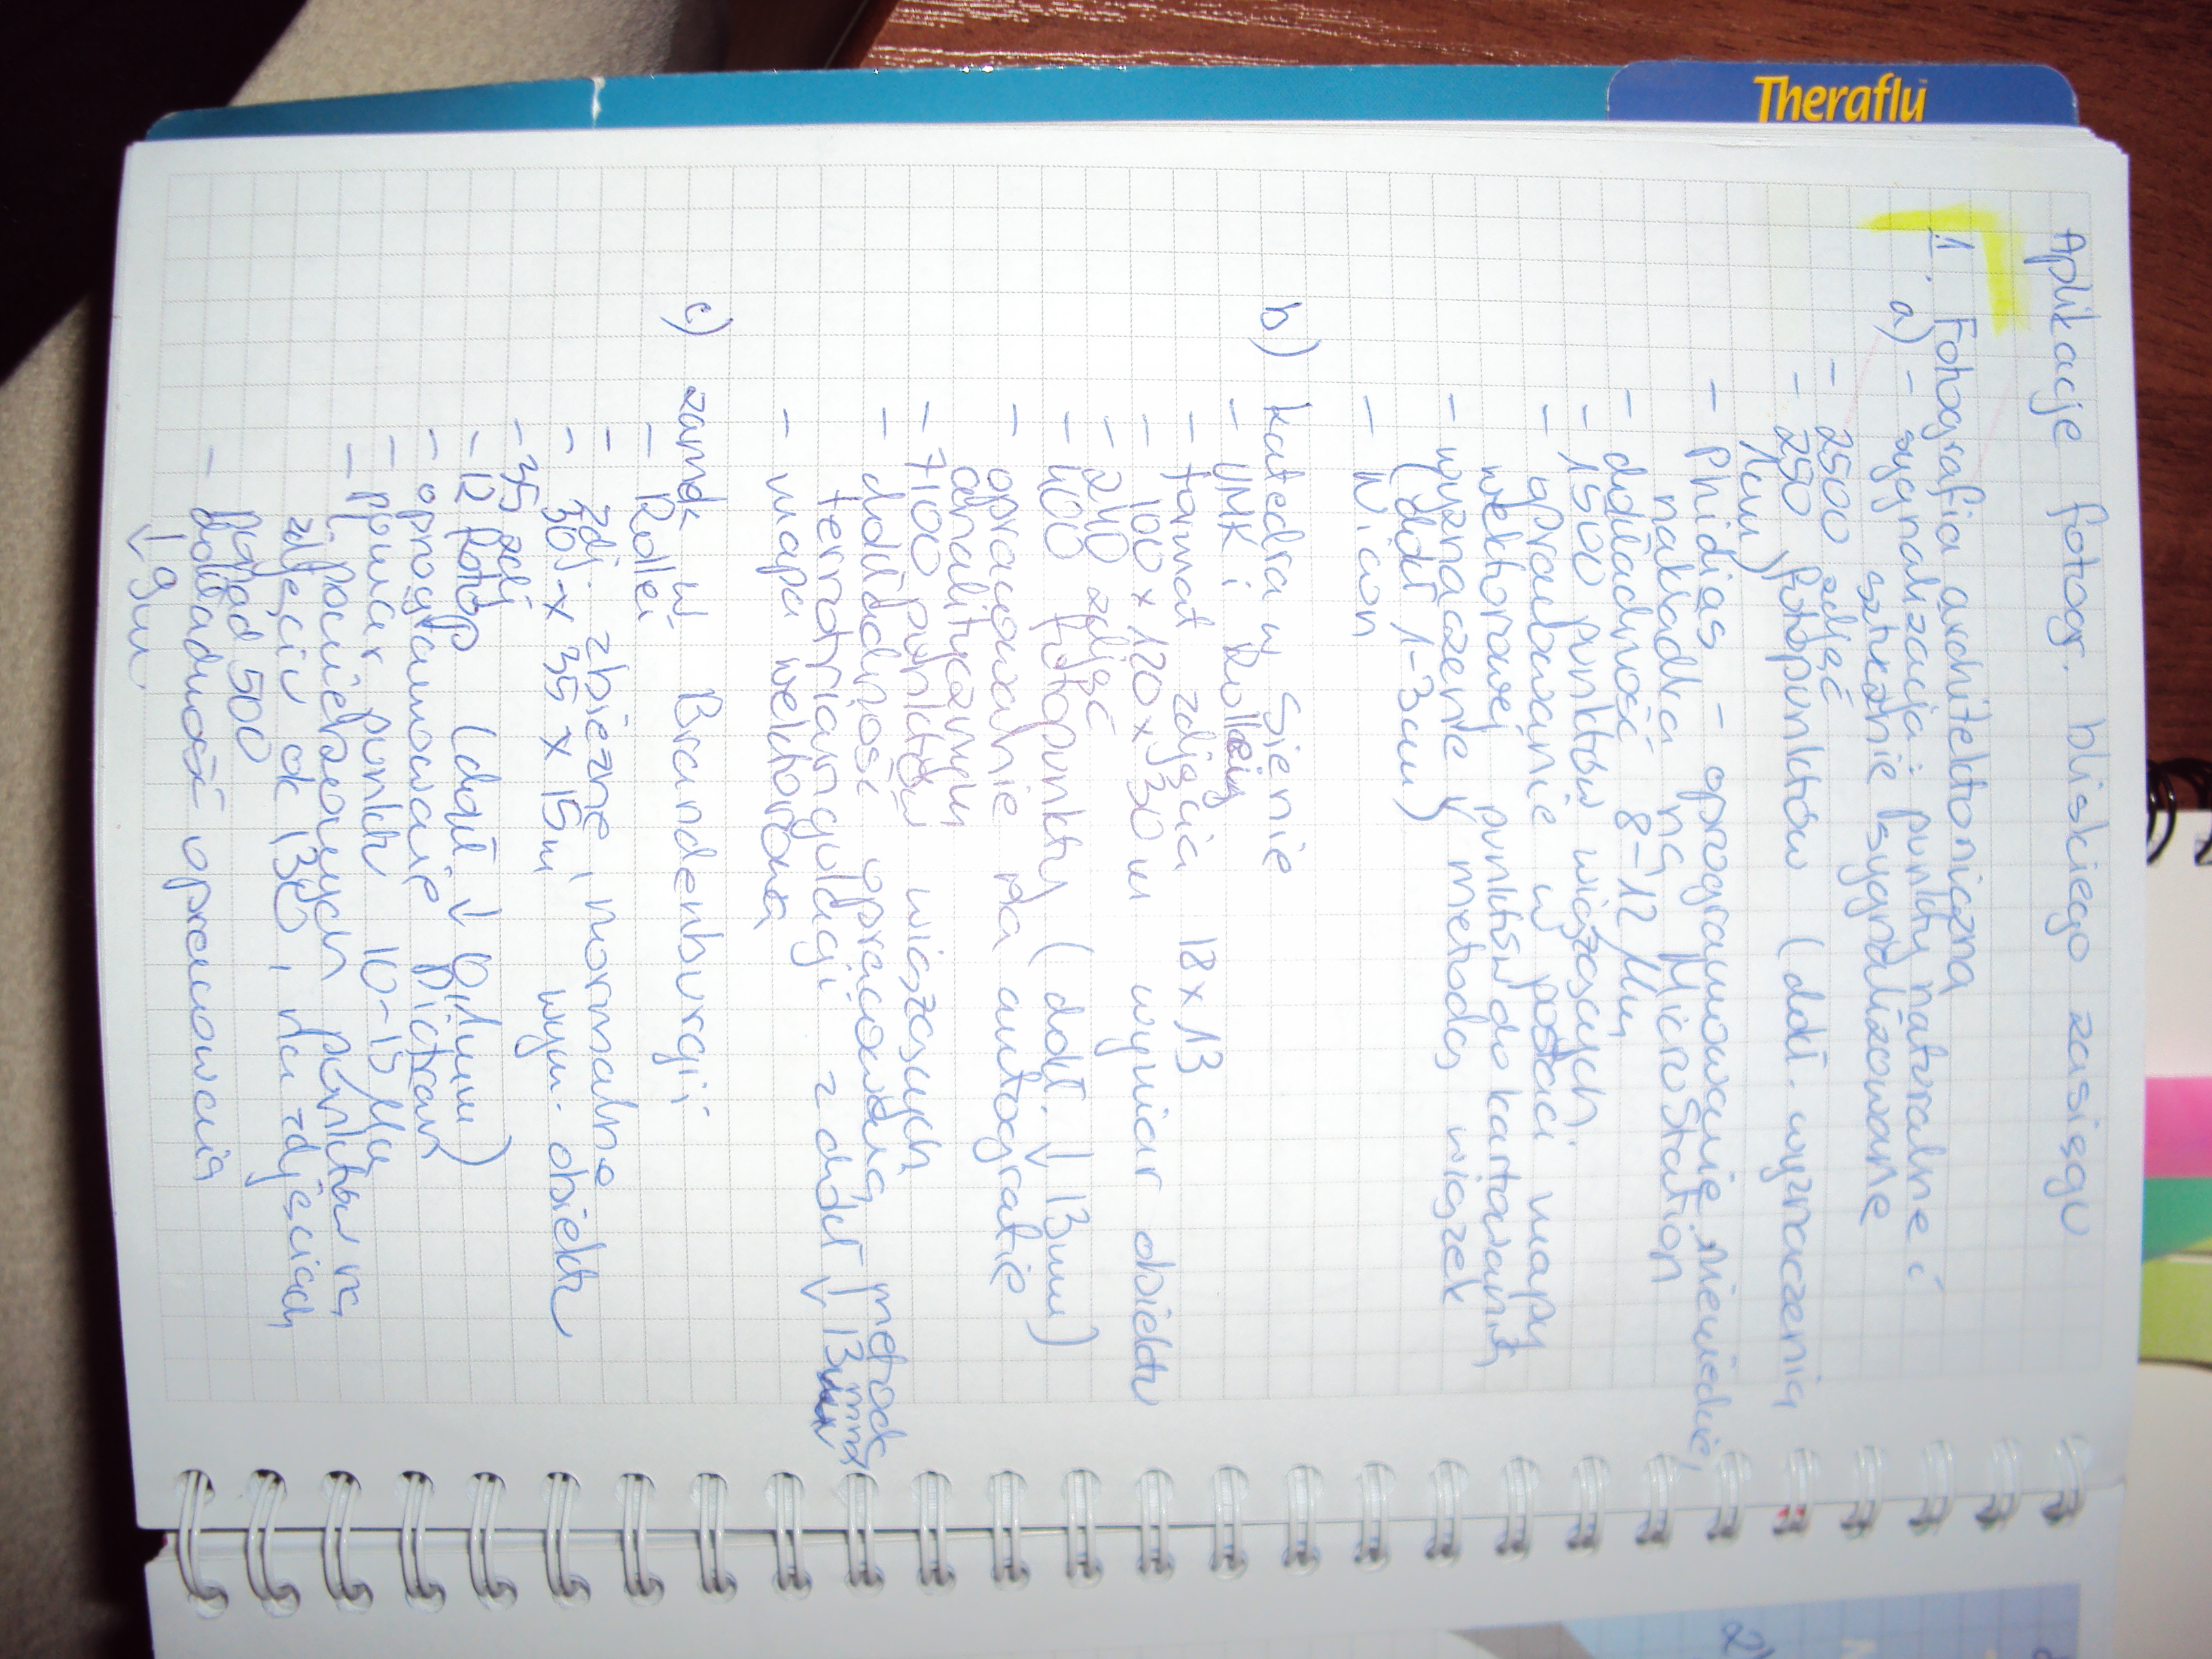 Theraflu
Aplikacje fotogr. bliskiego zasięgu
1. Fotografia architektoniczna
a) - sygnalizacja: punkty naturalne i
sztucznie sygnalizowane
- 2500 zdjęć
- 250 fotopunktów (dokł. wyznaczenia
- Phidias - oprogramowanie niemieckie,
nakładka na MicroStation
- dokładność 8-12 μm
- 1500 punktów wiążących
- opracowanie w postaci mapy
wektorowej, punktów do kartowania
- wyznaczenie metodą wiązek
(dokł 1-3cm)
- Nicon
b) Katedra w Sienie
- UMK i Rolley
- format zdjęcia 18x13
- 100 x 120 x 30 m wymiar obiektu
- 240 zdjęć
- 400 fotopunkty (dokł. ↓ 13mm)
- opracowanie na autografie
analitycznym
- 7100 punktów wiążących
- dokładność opracowana metodą
terratriangulacji z dokł ↓ 13mm
- mapa wektorowa
c) zamek w Brandenburgii
- Rollei
- zdj. zbieżne i normalne
- 30 x 35 x 15m wym. obiektu
- 35 zdj
- 12 fotop (dokł. ↓ 6mm)
- oprogramowanie Pictran
- pomiar punktu 10-15 μm
- pomierzonych punktów na
zdjęciu ok 130, na zdjęciach
ponad 500
- dokładność opracowania
↓ 9mm
2)